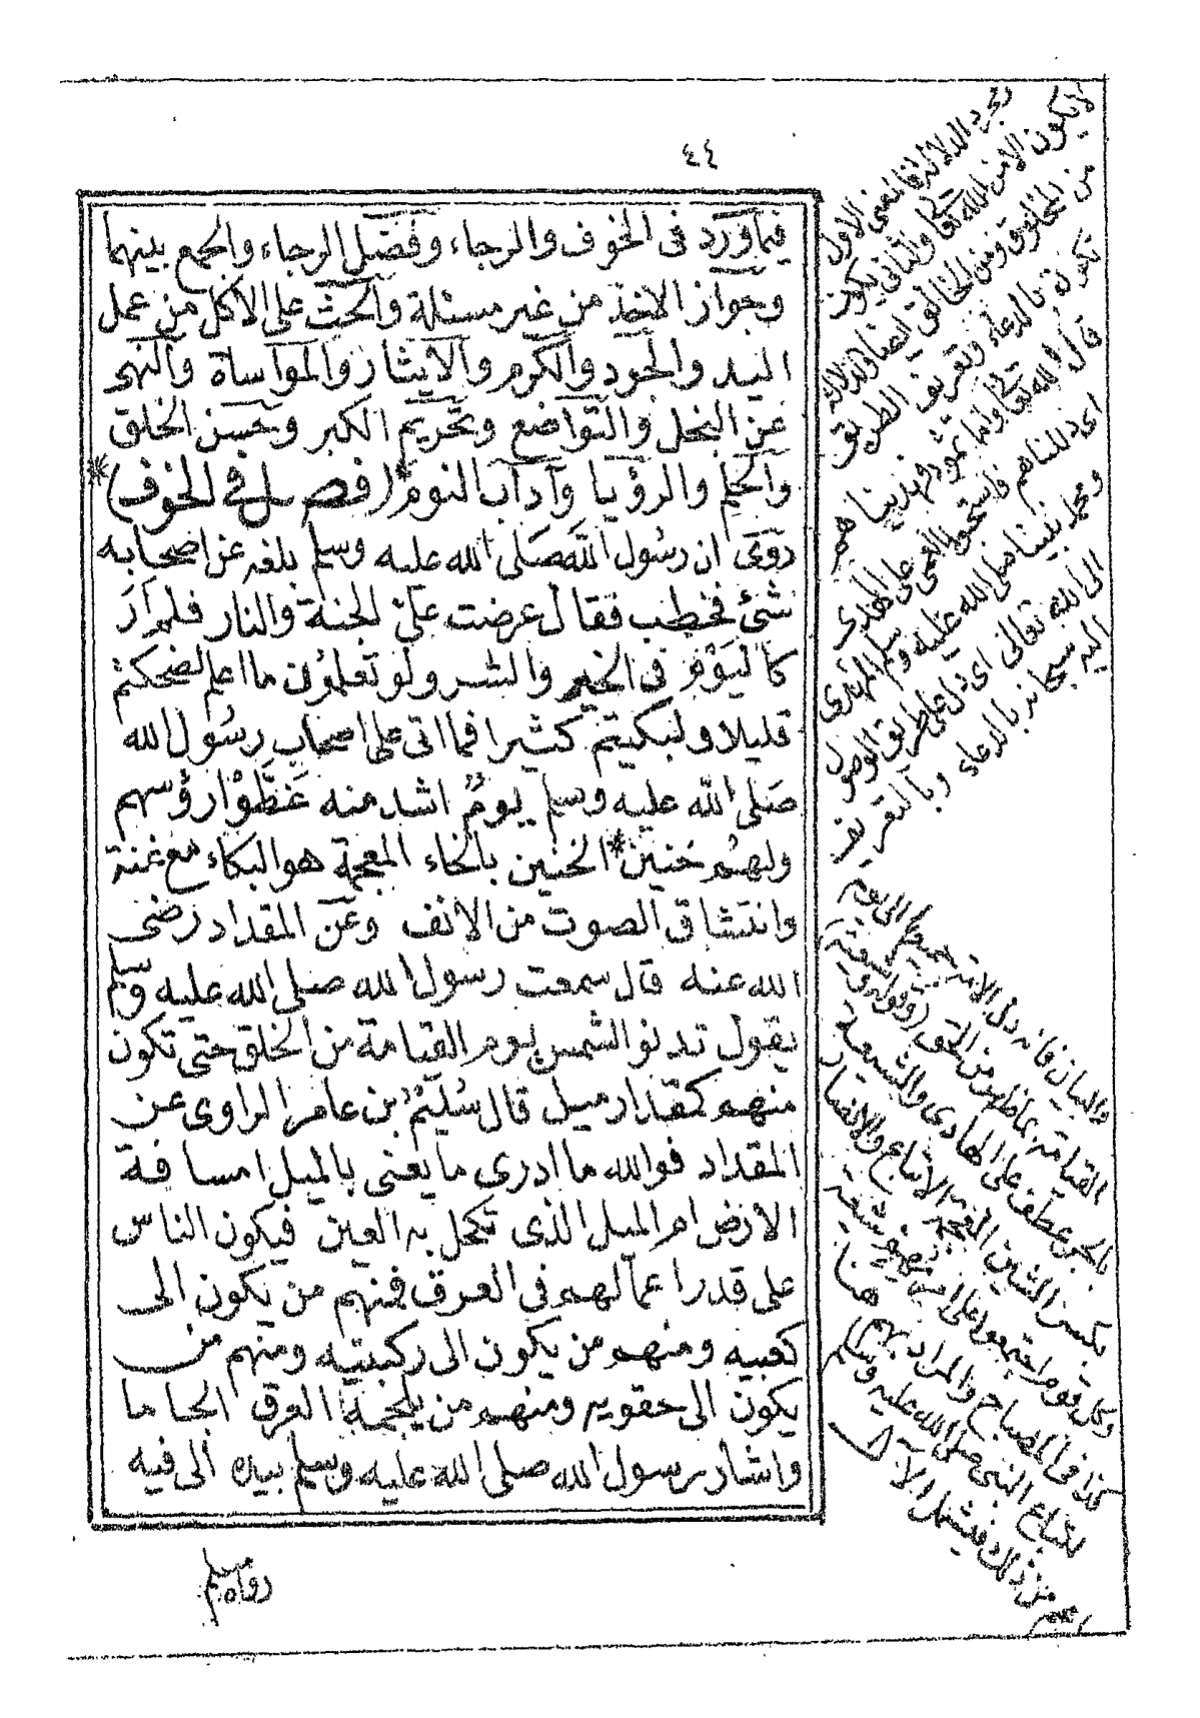 ٤٤
فيما ورد فى الخوف والرجاء وفضل الرجاء والجمع بينهما
وجواز الاخذ من غير مسئلة والحث على الاكل من عمل
اليد والجود والكرم والايثار والمواساة والنهى
عن البخل والتواضع وتحريم الكبر وحسن الخلق
والحلم والرؤيا وآداب النوم *(فصل فى الخوف)*
روى ان رسول الله صلى الله عليه وسلم بلغه عن اصحابه
شئ فخطب فقال عرضت علىّ الجنة والنار فلم أرَ
كاليَوْم فى الخير والشر ولو تعلمون ما اعلم لضحكتم
قليلا ولبكيتم كثيرا فما اتى على اصحاب رسول الله
صلى الله عليه وسلم يومٌ اشد منه غَطَّوْا رؤسهم
ولهم خنين * الخنين بالخاء المعجمة هو البكاء مع غنة
وانتشاق الصوت من الانف وعن المقداد رضى
الله عنه قال سمعت رسول الله صلى الله عليه وسلم
يقول تدنو الشمس يوم القيامة من الخلق حتى تكون
منهم كمقدار ميل قال سُلَيْمُ بن عامر الراوى عن
المقداد فوالله ما ادرى ما يعنى بالميل امسافة
الارض ام الميل الذى تكحل به العين فيكون الناس
على قدر اعمالهم فى العرق فمنهم من يكون الى
كعبيه ومنهم من يكون الى ركبتيه ومنهم من
يكون الى حقويه ومنهم من يلجمه العرق الجاما
واشار رسول الله صلى الله عليه وسلم بيده الى فيه
رواه مسلم
لا يكون الا من الله تعالى والثانى يكون
من المخلوق ومن الخالق ايضا والدلالة
تكون بالدعاء وتعريف الطريق
قال الله تعالى واما ثمود فهديناهم
اى دللناهم فاستحبوا العمى على الهدى
ومحمد نبينا صلى الله عليه وسلم المهدى
الى الله تعالى اى دل على طريق الوصول
اليه سبحانه بالدعاء وبالتعريف
والبيان فانه دل الامة جميعهم الى يوم
بالجر عطف على الهادى والشيعة
بكسر الشين المعجمة الاتباع والانصار
وكل قوم اجتمعوا على امر فهم شيعة
كذا فى المصباح والمراد بهم هنا
اتباع النبى صلى الله عليه وسلم
اعم من ذلك فيشمل الآل